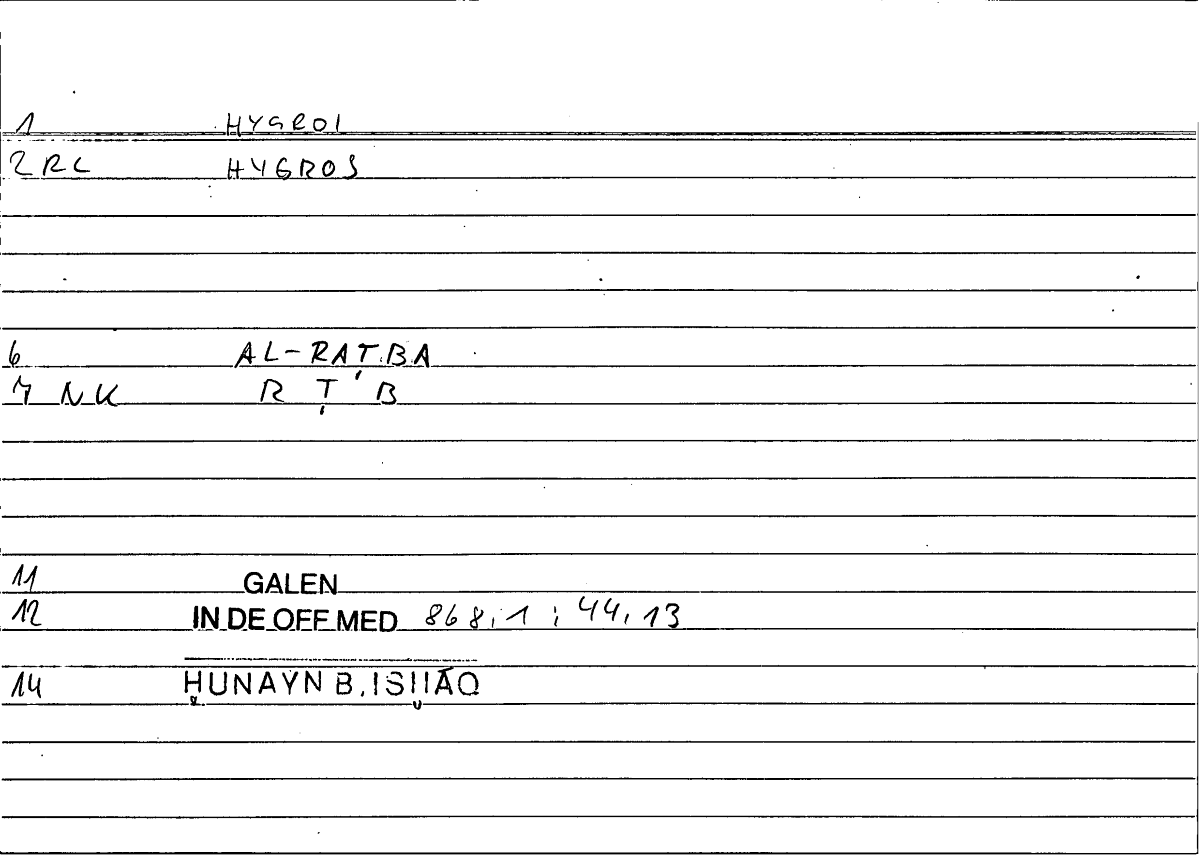 1 HYGROI
2 RC HYGROS
6 AL-RAṬBA
7 NK R Ṭ B
11 GALEN
12 IN DE OFF MED 868,1 ; 44,13
14 ḤUNAYN B. ISḤĀQ